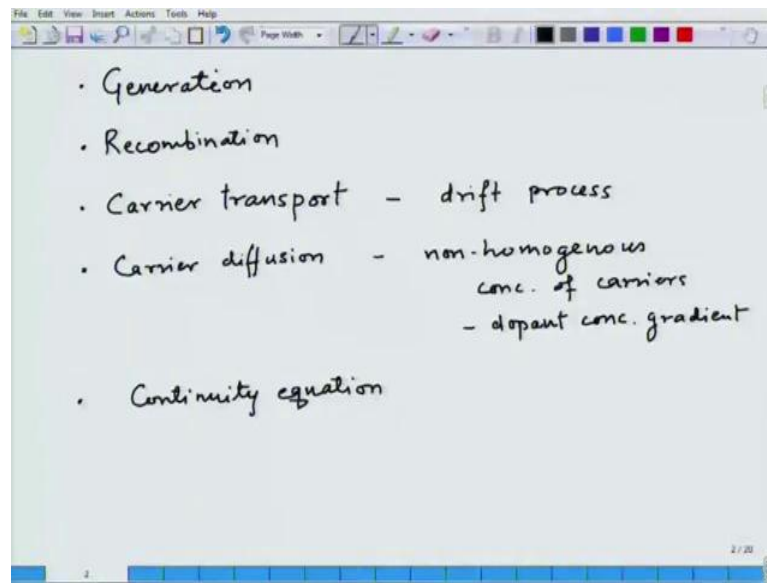 File Edit View Insert Actions Tools Help
Page Width
B I
• Generation
• Recombination
• Carrier transport - drift process
• Carrier diffusion - non-homogenous
conc. of carriers
- dopant conc. gradient
• Continuity equation
2 / 20
2